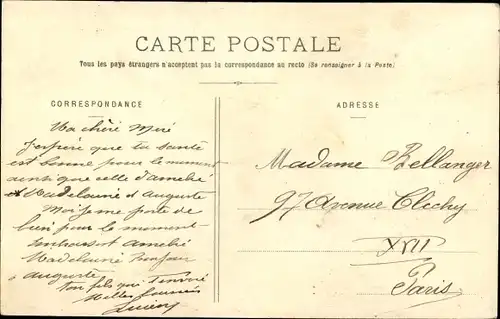 CARTE POSTALE
Tous les pays étrangers n'acceptent pas la correspondance au recto (Se renseigner à la Poste)
CORRESPONDANCE
ADRESSE
Ma chère Mère
J'espère que ta santé
est bonne pour le moment
ainsi que celle d'amelie
et Madelaine et Auguste
Moi je me porte de
bien pour le moment
Embrassent amelie
Madelaine
auguste
ton fils qui t'envoie
Milles
Lucien
Madame Bellanger
97 Avenue Clichy
XVII
Paris